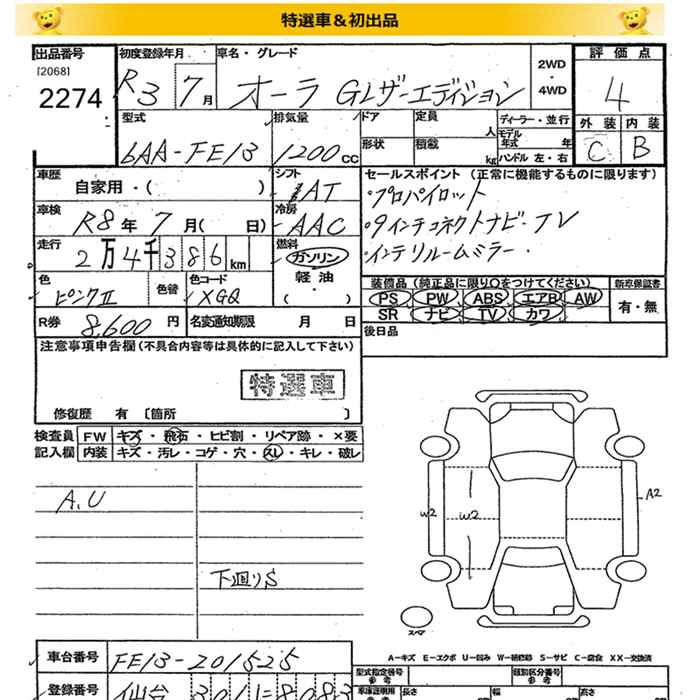 特選車＆初出品
出品番号 初度登録年月 車名・グレード 2WD 評価点
[2068]
2274 R3 7月 オーラ Gレザーエディション 4WD 4
型式 排気量 ドア 定員 人 ディーラー・並行 外装 内装
6AA-FE13 1200cc 形状 積載 kg モデル年式 年 C B
ハンドル 左・右
車歴 シフト セールスポイント (正常に機能するものに限ります)
自家用・( ) IAT ・プロパイロット
車検 冷房 ・9インチコネクトナビ・TV
R8年 7月( 日) AAC ・インテリルームミラー・
走行 燃料
2万4千386km ガソリン
軽油
・( )・
装備品 (純正品に限り○をつけてください) 新車保証書
色 色替 色コード PS PW ABS エアB AW 有・無
ピンクII XGQ SR ナビ TV カワ
R券 8,600円 名変通知期限 月 日 後日品
注意事項申告欄 (不具合内容等は具体的に記入して下さい)
特選車
修復歴 有 〔箇所 〕
検査員 FW キズ・飛石・ヒビ割・リペア跡・×要
記入欄 内装 キズ・汚レ・コゲ・穴・スレ・キレ・破レ
A.U
下廻りS
W2 W2 A2
スペア
A－キズ E－エクボ U－凹み W－補修跡 S－サビ C－腐食 XX－交換済
車台番号 FE13-201525
型式指定番号 類別区分番号
登録番号 仙台 301 8083
車庫証明用参考 長さ 幅 高さ